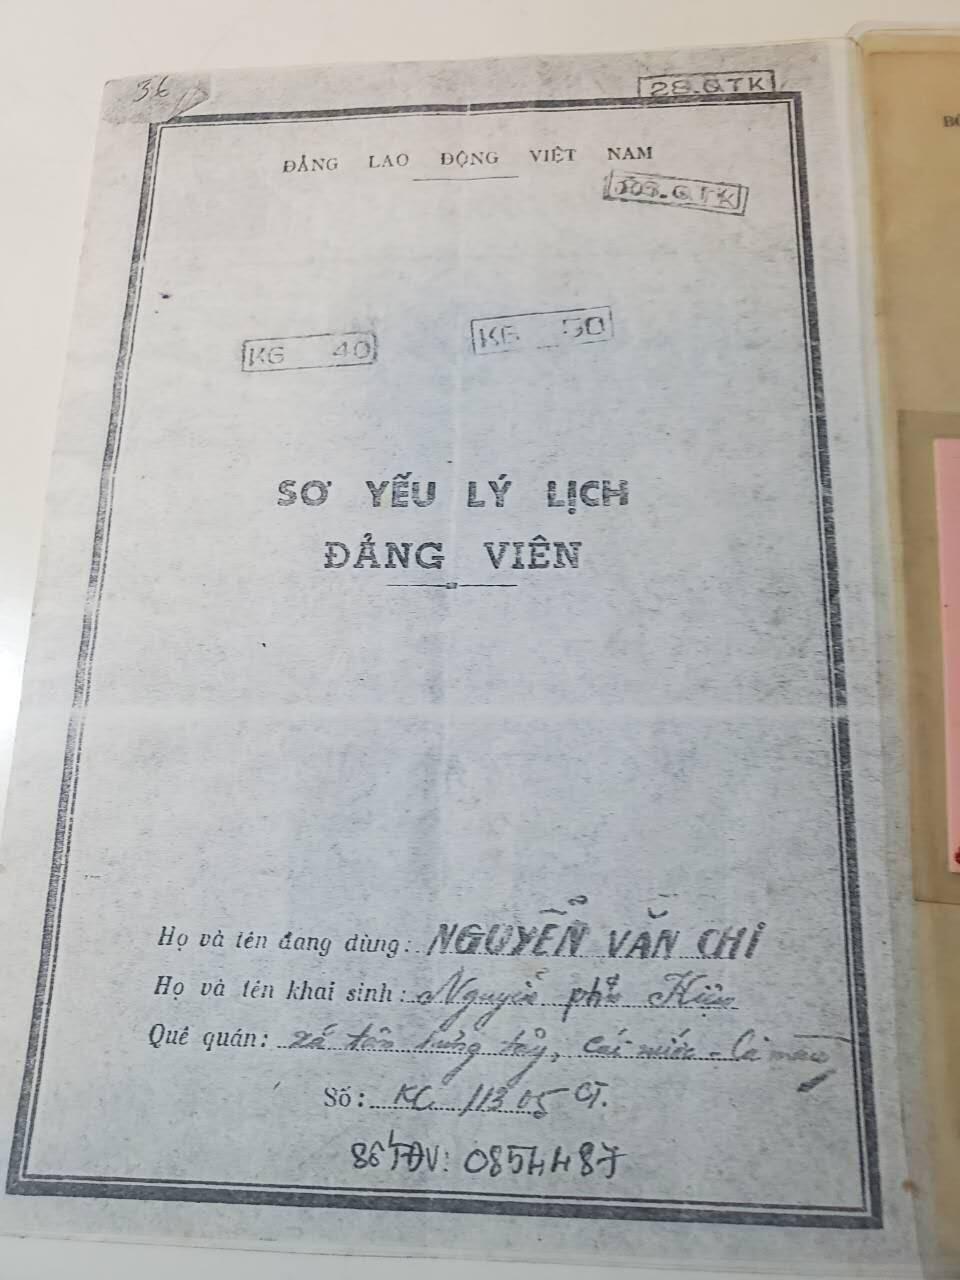 36
28.QTK
ĐẢNG LAO ĐỘNG VIỆT NAM
QTK
KG 40
KG 50
SƠ YẾU LÝ LỊCH
ĐẢNG VIÊN
Họ và tên đang dùng: NGUYỄN VĂN CHI
Họ và tên khai sinh: Nguyễn
Quê quán: xã tân hưng tây, cái nước - Cà mau
Số: KC 11305 CT.
Số TĐV: 0854487